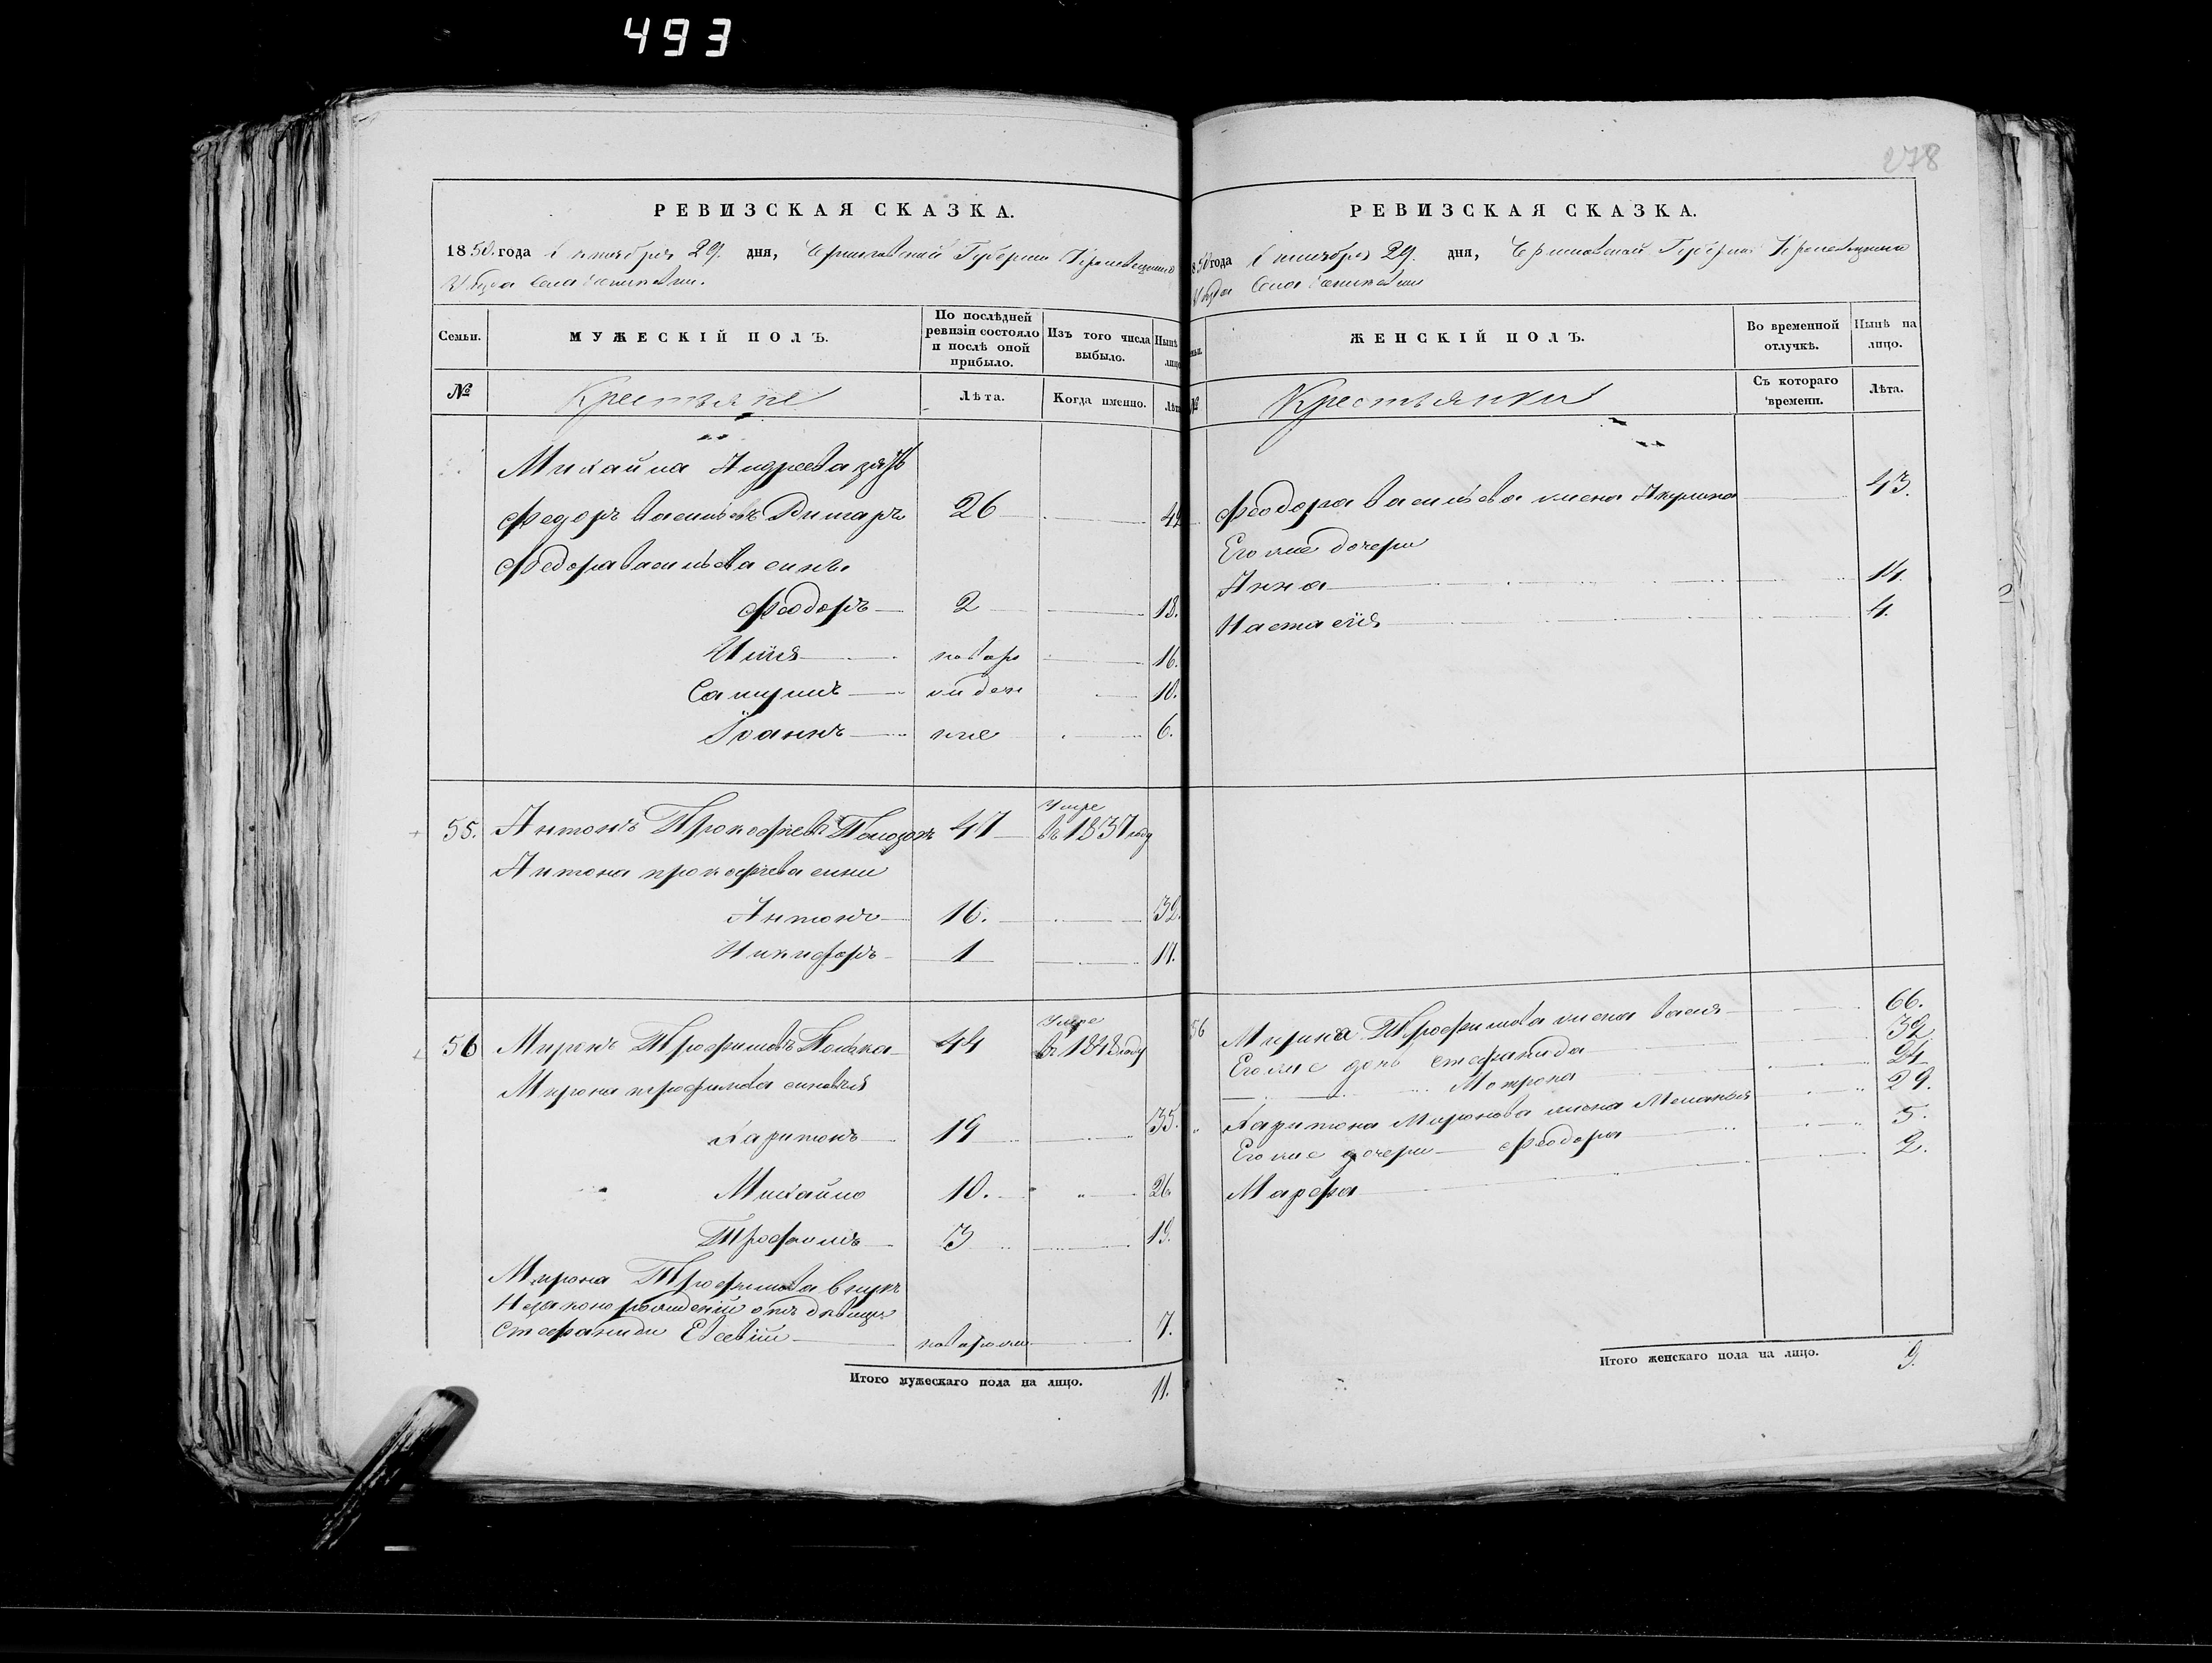 493
278
РЕВИЗСКАЯ СКАЗКА.
1850. года Октября 29. дня, Черниговской Губернии Кролевецкаго
Уезда Села
Семьи.
МУЖЕСКІЙ ПОЛЪ.
По послѣдней ревизіи состояло и послѣ оной прибыло.
Изъ того числа выбыло.
Нынѣ
№
Крестьяне
Лѣта.
Когда именно.
Михайла Андреева зять
Федоръ Васильевъ 26
Федора Васильева сынъ
Феодоръ 2 18.
Илія новоро 16.
Самуилъ жден 10.
Іоаннъ ные 6.
55. Антонъ Прокофіевъ 47 Умре въ 1837 году
Антона Прокофіева сыны
Антонъ 16. 32.
Никифоръ 1 17.
56 Миронъ Трофимовъ 44 Умре въ 1848 году
Мирона Трофимова сыновья
Харитонъ 19 35.
Михайло 10. 26
Трофимъ 3 19.
Мирона Трофимова внукъ
Незаконорожденій отъ дѣвицы
Стефаниды Евсевій новорож 7.
Итого мужескаго пола на лицо. 11.
РЕВИЗСКАЯ СКАЗКА.
1850 года Октября 29. дня, Черниговской Губернии Кролевецкаго
Уезда Села
ЖЕНСКІЙ ПОЛЪ.
Во временной отлучкѣ.
Нынѣ на лицо.
№
Крестьянки
Съ котораго времени.
Лѣта.
Феодора Васильева жена Акулина 43.
Его же дочери
Анна 14.
Настасія 4.
56 Мирона Трофимова жена 66.
Его же дочь Стефанида 39
Мотрона 24
Харитона Миронова жена Меланья 29.
Его же дочери Феодора 5.
Марфа 2.
Итого женскаго пола на лицо. 9.